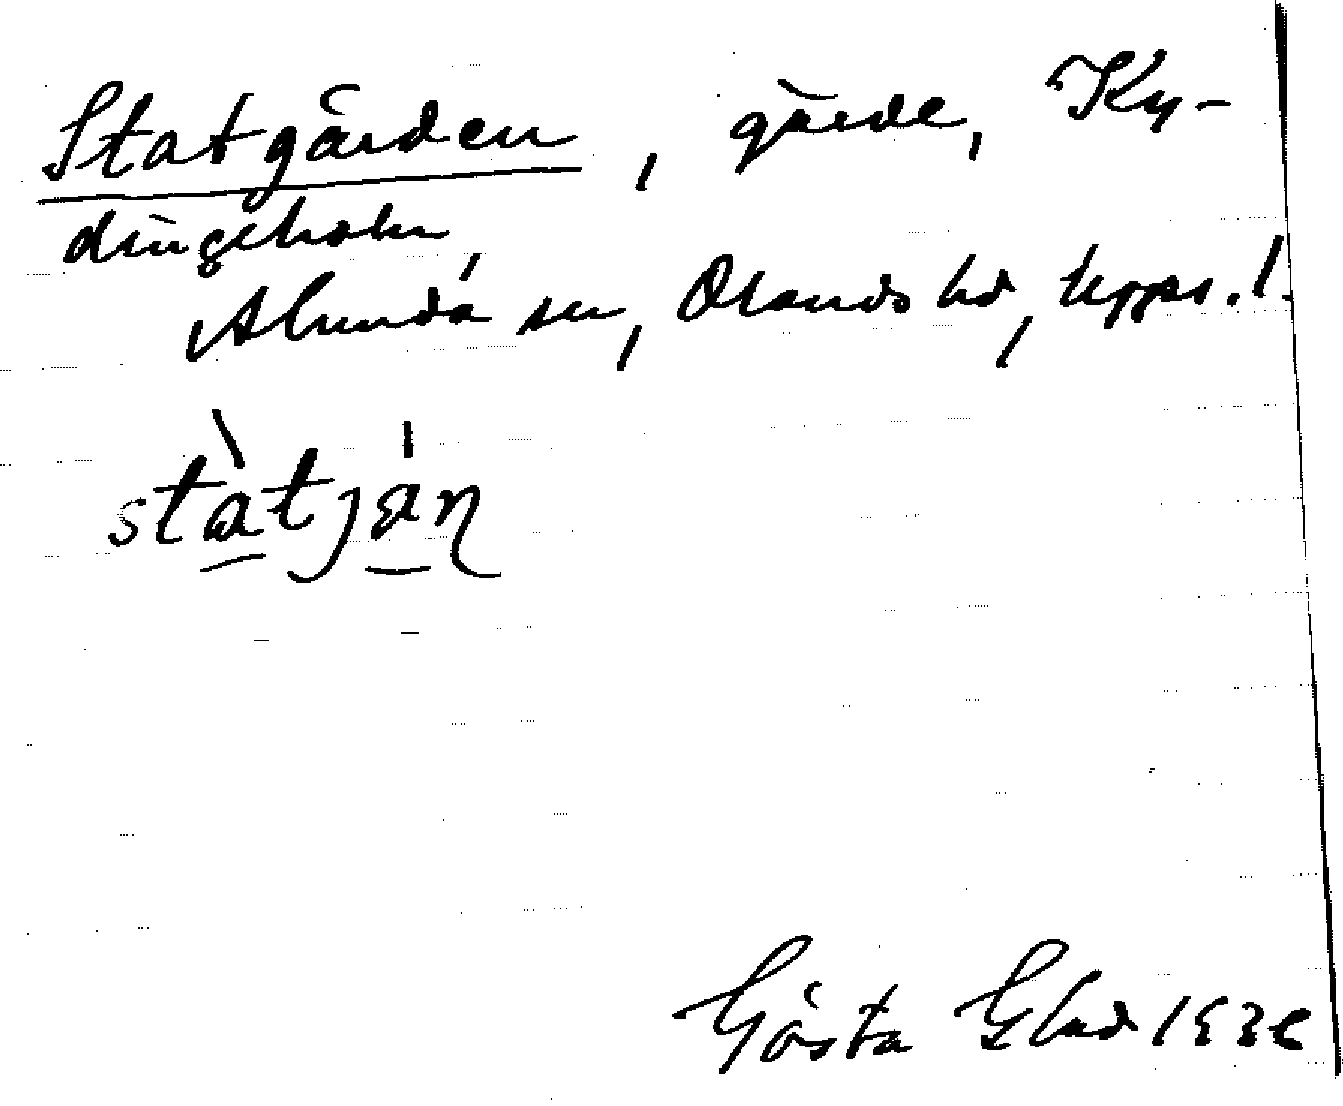 Statgärden, gärde, Ky-
dingeholm,
Alunda sn, Olands hd, Upps. l.
stàtján
Gösta Elud